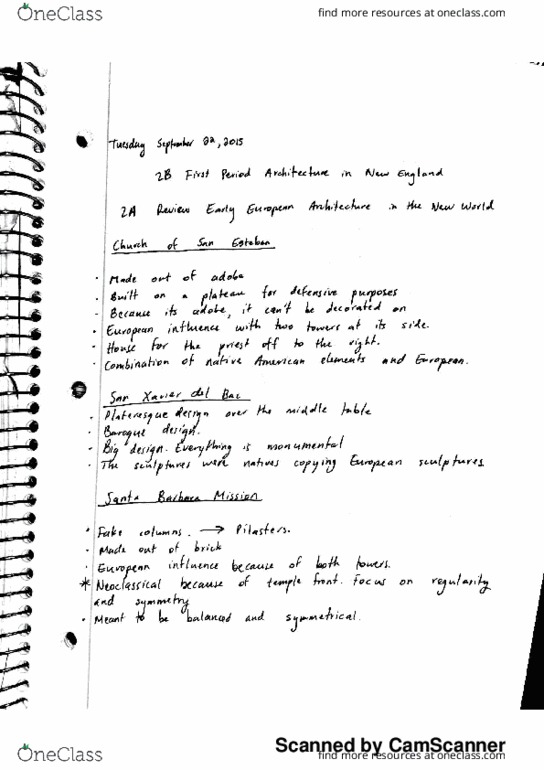 OneClass
find more resources at oneclass.com
Tuesday September 22, 2015
2B First Period Architecture in New England
2A Review Early European Architecture in the New World
Church of San Esteban
· Made out of adobe
· Built on a plateau for defensive purposes
- Because its adobe, it can't be decorated on
· European influence with two towers at its side.
· House for the priest off to the right.
· Combination of native American elements and European.
San Xavier del Bac
· Plateresque design over the middle table
· Baroque design.
· Big design. Everything is monumental
· The sculptures were natives copying European sculptures.
Santa Barbara Mission
· Fake columns. → Pilasters.
· Made out of brick
· European influence because of both towers.
* Neoclassical because of temple front. focus on regularity
and symmetry
· Meant to be balanced and symmetrical.
Scanned by CamScanner
OneClass
find more resources at oneclass.com